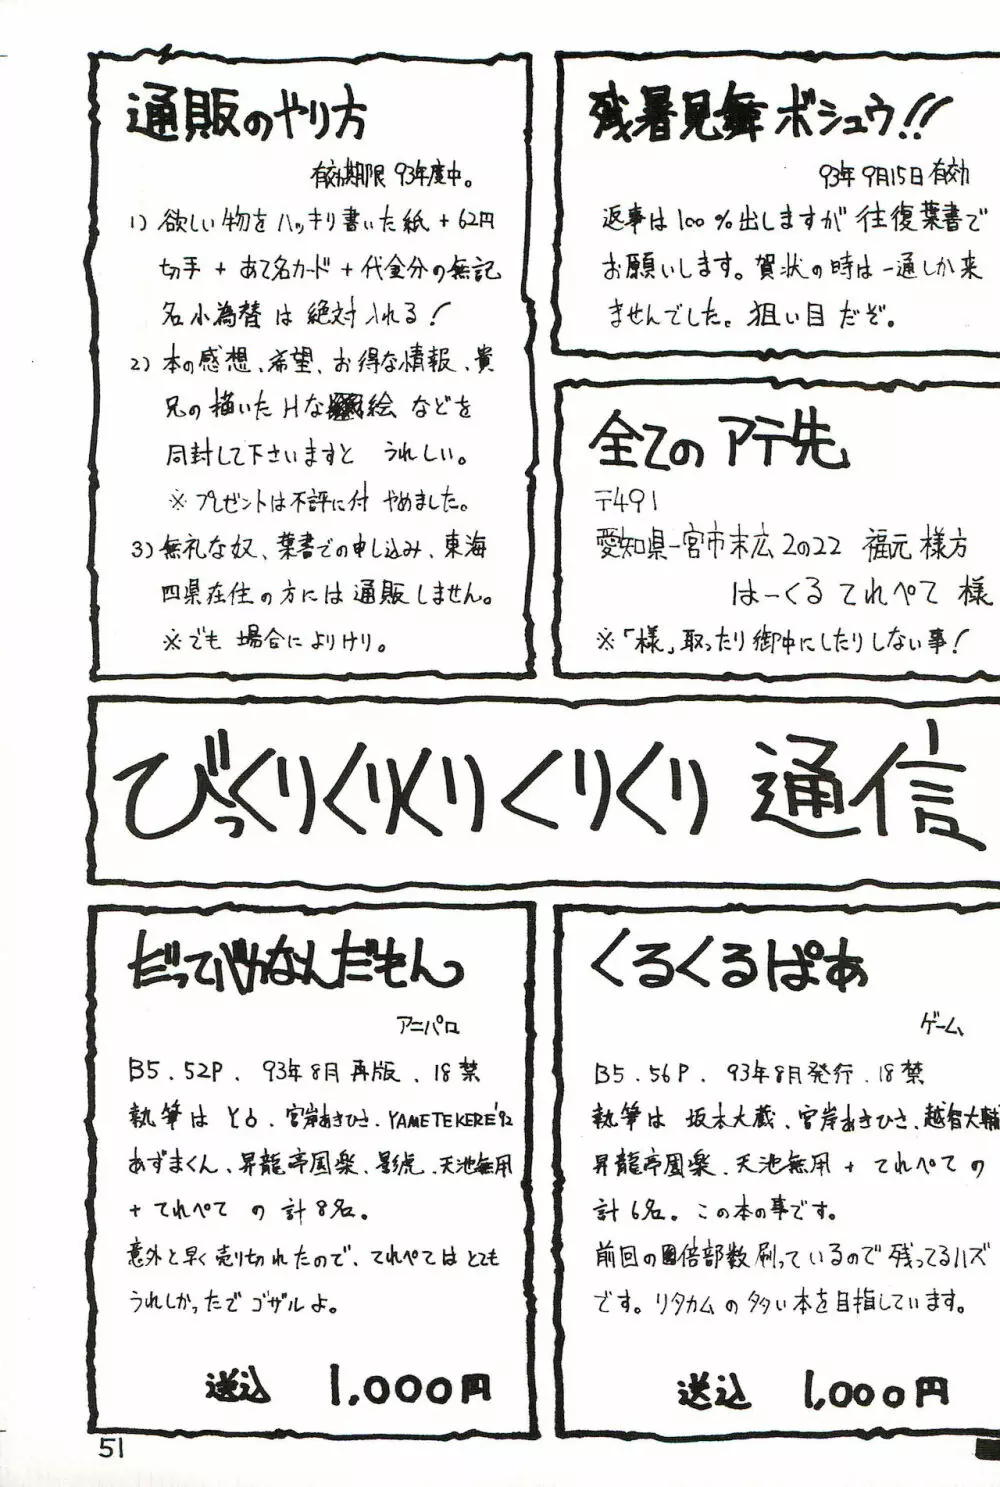 通販のやり方
有効期限 93年度中。
1) 欲しい物をハッキリ書いた紙+62円
切手+あて名カード+代金分の無記
名小為替は絶対入れる!
2) 本の感想、希望、お得な情報、貴
兄の描いたHな絵などを
同封して下さいますと うれしい。
※プレゼントは不評に付 やめました。
3) 無礼な奴、葉書での申し込み、東海
四県在住の方には通販しません。
※でも 場合によりけり。
残暑見舞ボシュウ!!
93年9月15日有効
返事は100%出しますが往復葉書で
お願いします。賀状の時は一通しか来
ませんでした。狙い目だぞ。
全てのアテ先
〒491
愛知県一宮市末広2の22 福元様方
はーくるてれぺて様
※「様」取ったり御中にしたりしない事!
びっくりくりくりくりくり通信
だってバカなんだもんっ
アニパロ
B5.52P. 93年8月再版.18禁
執筆は とろ、宮岸あきひさ、YAMETEKERE'92
あずまくん、昇龍亭圓楽、影虎、天池無用
+てれぺて の計8名。
意外と早く売り切れたので、てれぺてはとても
うれしかったでゴザルよ。
送込 1,000円
くるくるぱあ
ゲーム
B5.56P. 93年8月発行.18禁
執筆は 坂本大蔵、宮岸あきひさ、越智大輔
昇龍亭圓楽、天池無用+てれぺての
計6名。この本の事です。
前回の倍部数刷っているので残ってるハズ
です。リタカムの多い本を目指しています。
送込 1,000円
51